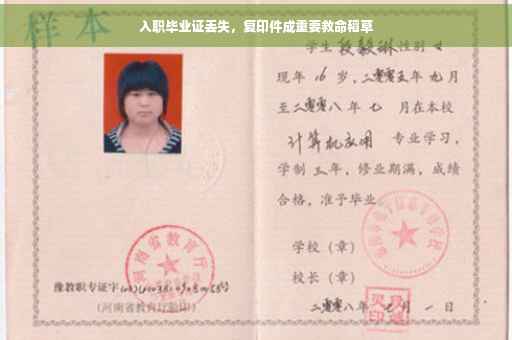 入职毕业证丢失，复印件成重要救命稻草
样本
学生 段毅琳 性别 女
现年 16 岁，二零零五年九月
至二零零八年七 月在本校
计算机应用 专业学习，
学制 三年，修业期满，成绩
合格，准予毕业
学校（章）
校长（章）
二零零八年 月 一 日
河南省教育厅
豫教职专证字
（河南省教育厅验印）